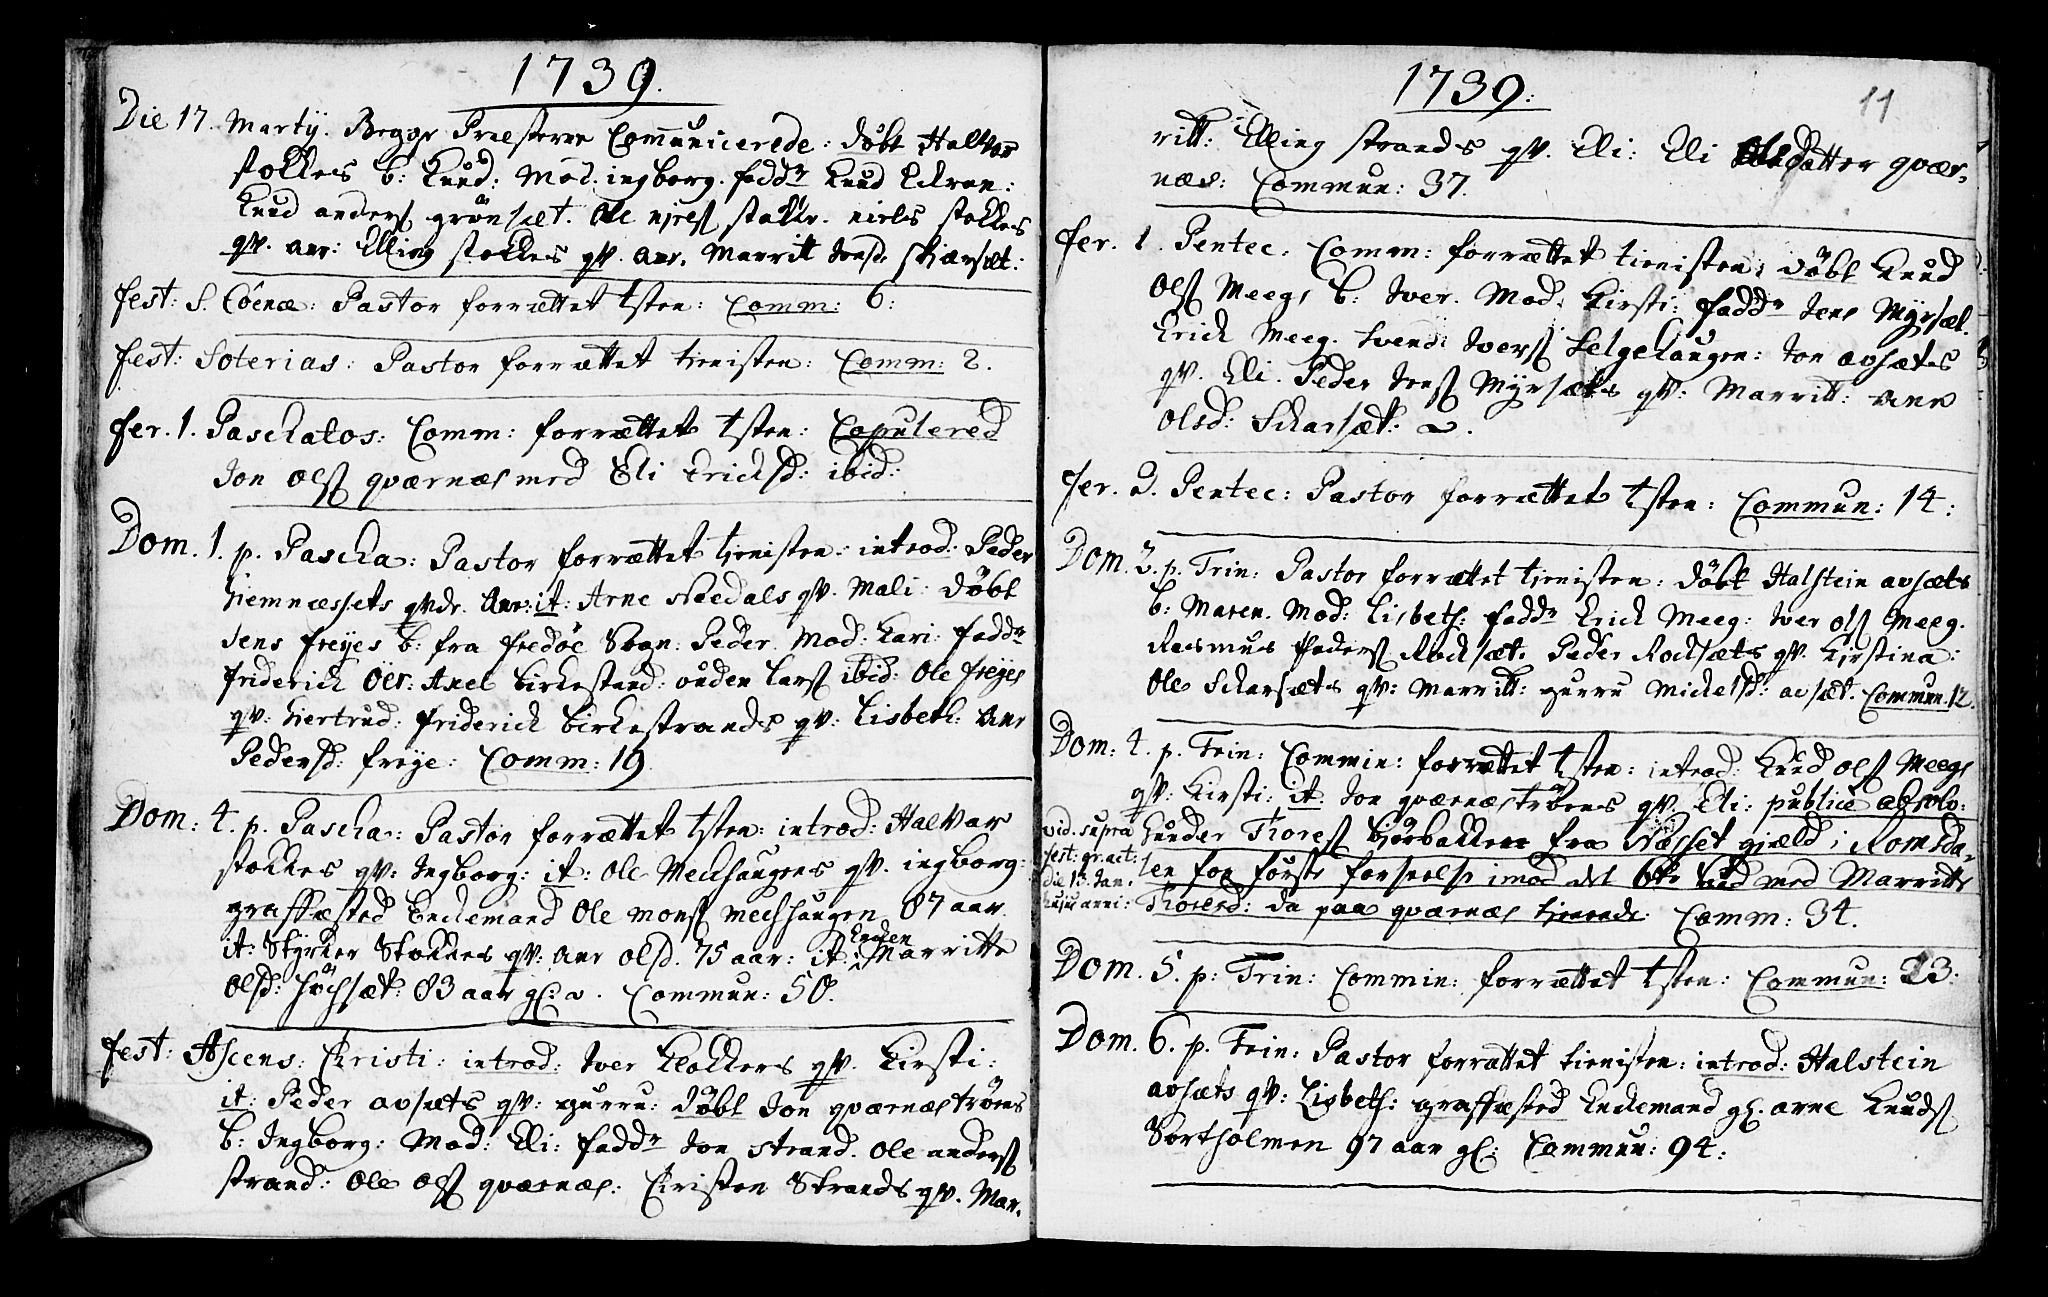 1739.
Die 17. Martij. Begge Præsterne Communicerede: døbt Halvor
stokkes b: Knud: Mod. ingborg. fadd^r Knud
Knud anders grønset. Ole stokke. niels stokkes
qv. anr: Elling stokkes qv. anr. Marrit Jensd. skiærset:
fest: S. Cœnæ: Pastor forrættet tsten: Comm: 6:
fest: Soterias: Pastor forrættet tienisten: Comm: 2.
fer. 1. Paschatos: Comm: forrættet tsten: Copulered
Jon Ols qværnæs med Eli Ericksd: ibid:
Dom. 1. p. Pascha: Pastor forrættet tienisten: introd: Peder
hiemnæssets qvdr. Anr: it: Arne qv. Mali: døbt
Jens freyes b: fra fredøe Sogn: Peder. Mod: Kari: fadd^r
friderich Øer: Axel birkestrand: ouden Lars ibid: Ole freyes
qv: Giertrud: friderich birkestrands qv: Lisbeth: Anr
Pedersd: freye: Comm: 19.
Dom: 4. p. Pascha: Pastor forrættet tsten: introd: Halvor
stokkes qv: Ingborg: it: Ole Mechhaugens qv. ingborg:
graffæsted Enckemand Ole mons mechhaugen 87 aar.
it: Styrker Stokkes qv: Anr olsd. 75 aar: it: Encken Marritte
Olsd: høchset: 83 aar gl: Commun: 50.
fest: Ascens: Christi: introd: Iver Klokkers qv. Kirsti:
it: Peder avsæts qv: gurru: døbt Jon qværnæstrøens
b: Ingborg: Mod: Eli: fadd^r Jon strand. Ole anders
strand: Ole Ols qværnæs: Christen Strands qv. Mar-
1739:
11
ritt: Elling strands qv. Eli: Eli Olsdatter qvær-
næs: Commun: 37.
fer. 1. Pentec: Comm: forrættet tienisten: døbt Knud
Ols Meegs b: Iver. Mod: Kirsti: fadd^r Jens Myrsæt.
Erick Meeg. Svend: Ivers Helgehaugen: Jon avsætes
qv. Eli. Peder Jens Myrsætes qv: Marritt: Ane
Olsd: Skarsæt:
fer. 2. Pentec: Pastor forrættet tsten: Commun: 14:
Dom. 2. p. Trin: Pastor forrættet tienisten: døbt Halstein avsæts
b: Maren. Mod: Lisbeth: fadd^r Erick Meeg: Iver ols Meeg.
Rasmus Peders Rochsæt. Peder Rochsæts qv. Kirstina:
Ole Skarsæts qv: Marritt: gurru Mickelsd: avsæt. Commun. 12.
Dom: 4. p. Trin: Commin: forrættet tsten: introd: Knud Ols Meegs
qv: Kirsti: it: Jon qværnæstrøens qv. Eli: publice absolv:
vid. supra
fest: gr. act:
die 13. Jan.
hujus anni:
Gunder Thores Biørbakken fra Næsset gjæld i Romsda-
len for første forseelse imod det 6te bud med Marritte
Thoresd: da paa qværnæs tienende: Comm: 34.
Dom. 5. p: Trin: Commin: forrættet tsten: Commun: 23:
Dom. 6. p. Trin: Pastor forrættet tienisten: introd: Halstein
avsæts qv: Lisbeth: graffæsted Enckemand gl. arne Knuds
Sortholmen 97 aar gl: Commun: 94: